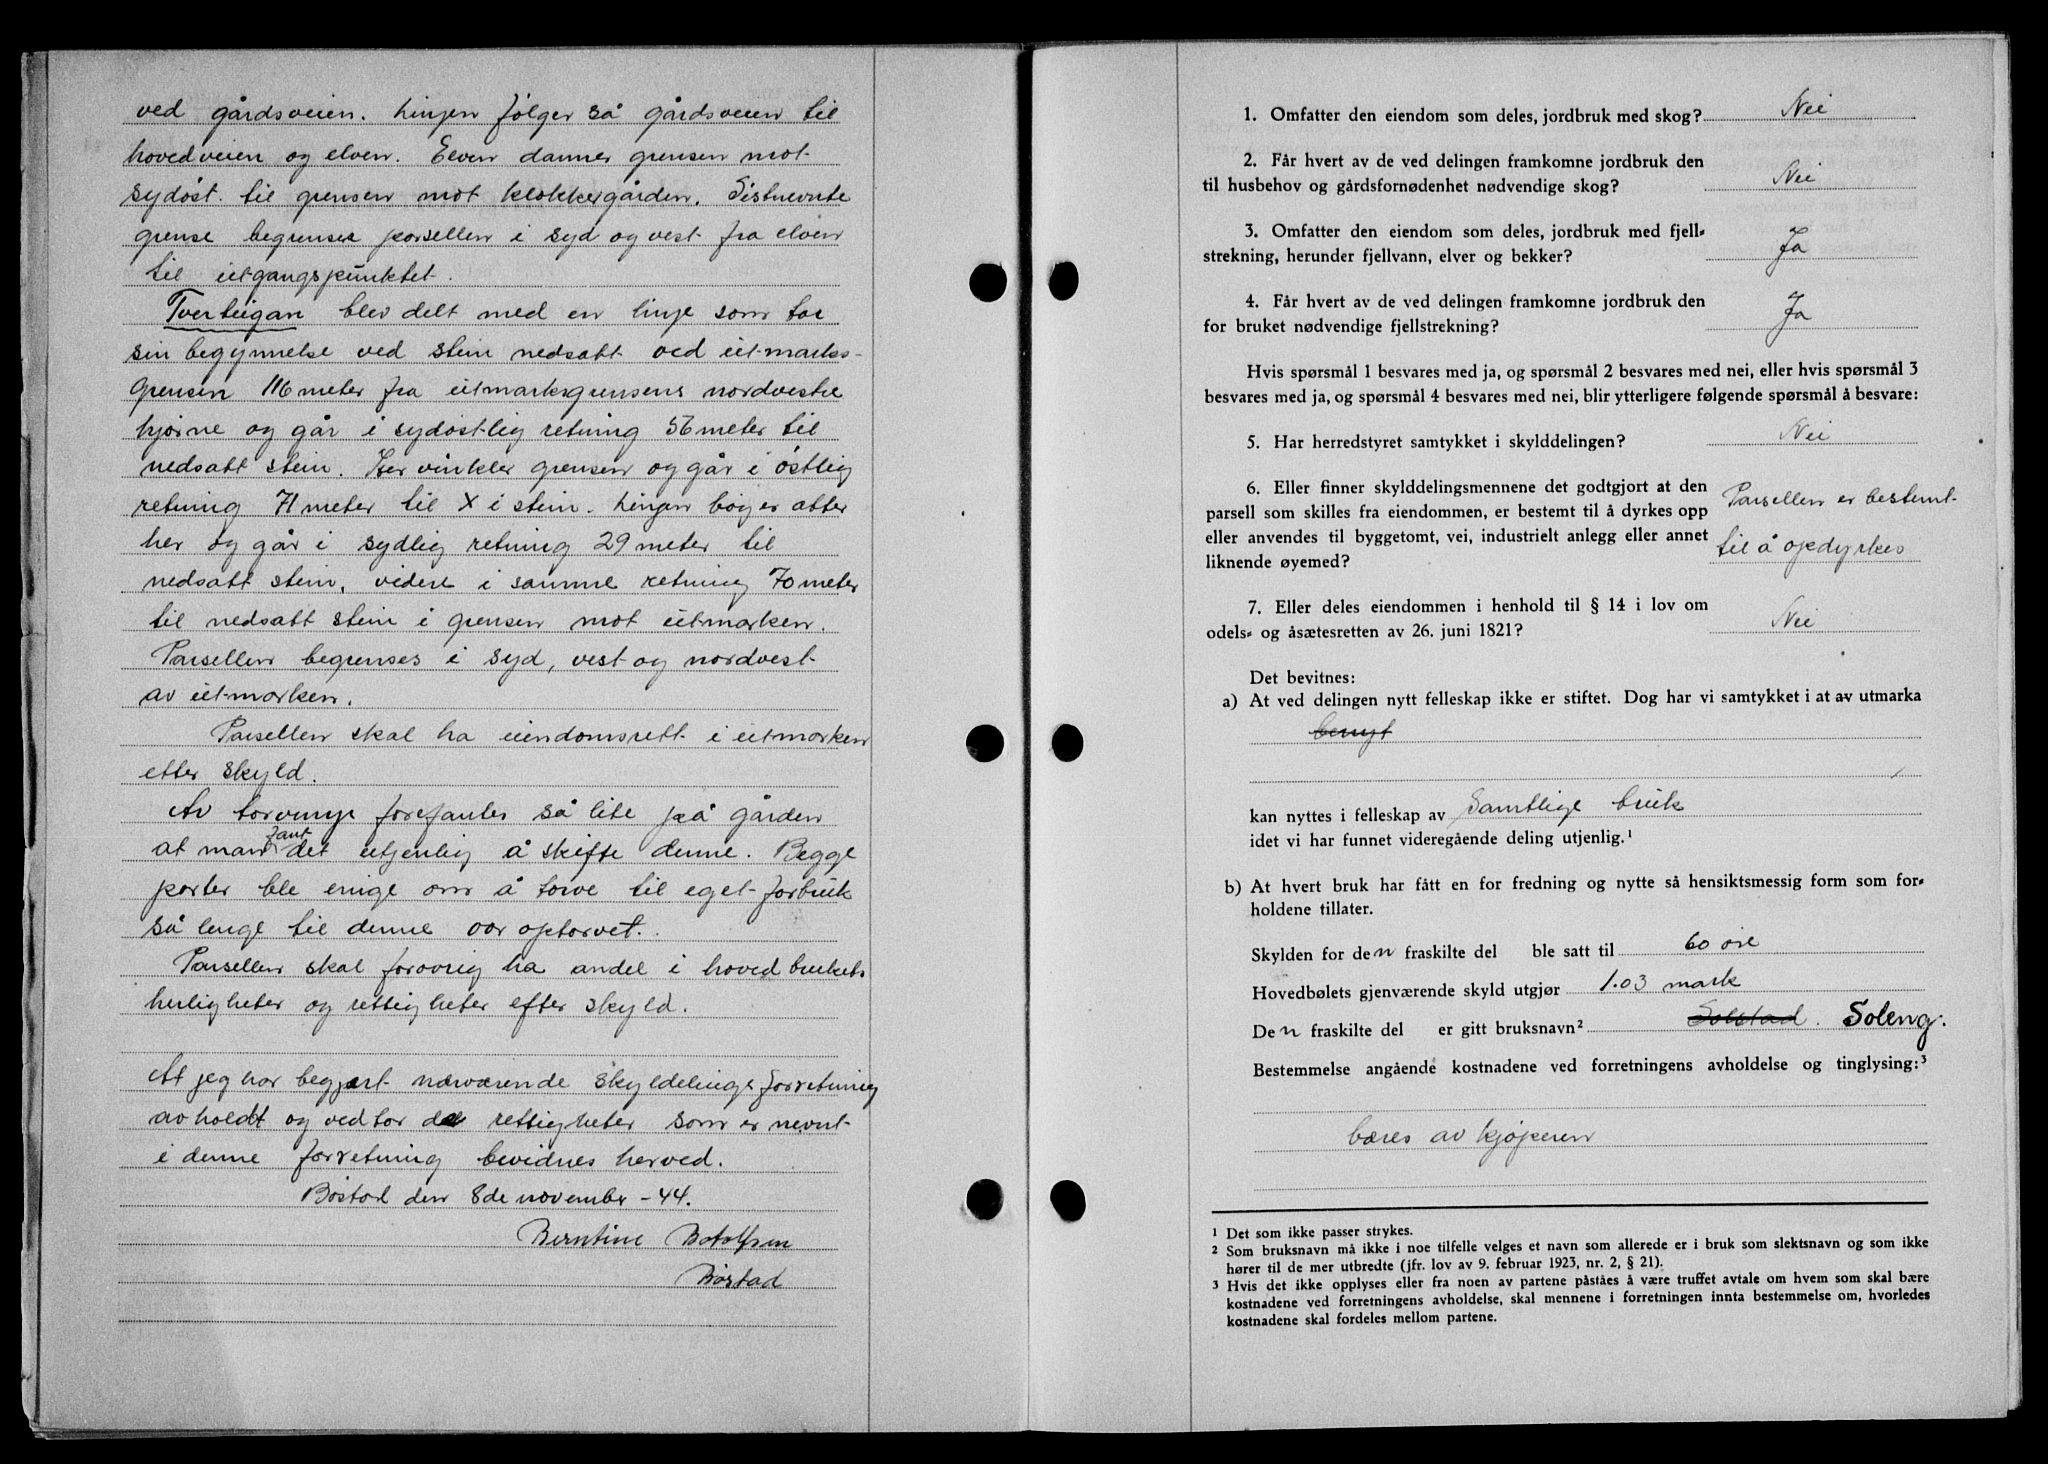 ved gårdsveien. Linjen følger så gårdsveien til
hovedveien og elven. Elven danner grensen mot
sydøst til grensen mot Klokkergården. Sistnevnte
grense begrenser parsellen i syd og vest fra elven
til utgangspunktet.
Tverteigan blev delt med en linje som tar
sin begynnelse ved stein nedsatt ved utmarks-
grensen 116 meter fra utmarksgrensens nordvestre
hjørne og går i sydøstlig retning 56 meter til
nedsatt stein. Her vinkler grensen og går i østlig
retning 71 meter til X i stein. Linjen bøyer atter
her og går i sydlig retning 29 meter til
nedsatt stein, videre i samme retning 70 meter
til nedsatt stein i grensen mot utmarken.
Parsellen begrenses i syd, vest og nordvest
av utmarken.
Parsellen skal ha eiendomsrett i utmarken
etter skyld.
Av torvmyr forefantes så lite på gården
at man fant det utjenlig å skifte denne. Begge
parter ble enige om å torve til eget forbruk
så lenge til denne var optorvet.
Parsellen skal forøvrig ha andel i hovedbrukets
herligheter og rettigheter efter skyld.
At jeg har begjært nærværende skyldelingsforretning
avholdt og vedtar de rettigheter som er nevnt
i denne forretning bevidnes herved.
Bøstad den 8de november -44.
Berntine Botolfsen
Bøstad
1. Omfatter den eiendom som deles, jordbruk med skog? Nei
2. Får hvert av de ved delingen framkomne jordbruk den
til husbehov og gårdsfornødenhet nødvendige skog? Nei
3. Omfatter den eiendom som deles, jordbruk med fjell-
strekning, herunder fjellvann, elver og bekker? Ja
4. Får hvert av de ved delingen framkomne jordbruk den
for bruket nødvendige fjellstrekning? Ja
Hvis spørsmål 1 besvares med ja, og spørsmål 2 besvares med nei, eller hvis spørsmål 3
besvares med ja, og spørsmål 4 besvares med nei, blir ytterligere følgende spørsmål å besvare:
5. Har herredstyret samtykket i skylddelingen? Nei
6. Eller finner skylddelingsmennene det godtgjort at den
parsell som skilles fra eiendommen, er bestemt til å dyrkes opp
eller anvendes til byggetomt, vei, industrielt anlegg eller annet
liknende øyemed?
Parsellen er bestemt
til å opdyrkes
7. Eller deles eiendommen i henhold til § 14 i lov om
odels- og åsætesretten av 26. juni 1821? Nei
Det bevitnes:
a) At ved delingen nytt felleskap ikke er stiftet. Dog har vi samtykket i at av utmarka
benyt
kan nyttes i felleskap av samtlige bruk
idet vi har funnet videregående deling utjenlig.¹
b) At hvert bruk har fått en for fredning og nytte så hensiktsmessig form som for-
holdene tillater.
Skylden for den fraskilte del ble satt til 60 øre
Hovedbølets gjenværende skyld utgjør 1.03 mark
Den fraskilte del er gitt bruksnavn² Solstad. Soleng.
Bestemmelse angående kostnadene ved forretningens avholdelse og tinglysing:³
bæres av kjøperen
¹ Det som ikke passer strykes.
² Som bruksnavn må ikke i noe tilfelle velges et navn som allerede er i bruk som slektsnavn og som ikke
hører til de mer utbredte (jfr. lov av 9. februar 1923, nr. 2, § 21).
³ Hvis det ikke opplyses eller fra noen av partene påståes å være truffet avtale om hvem som skal bære
kostnadene ved forretningens avholdelse, skal mennene i forretningen innta bestemmelse om, hvorledes
kostnadene skal fordeles mellom partene.